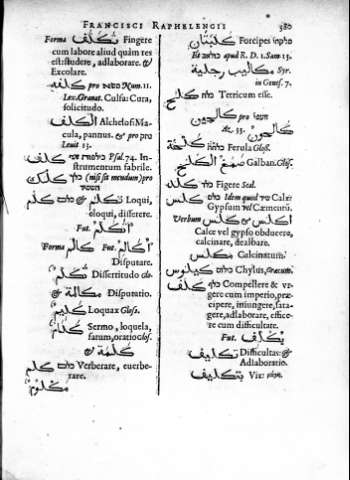 FRANCISCI RAPHELENGII 380
Forma تكلّف Fingere
cum labore aliud quàm res
est: studere, adlaborare. &
Excolare.
كلفه pro Num. 11.
Lex. Granat. Culfa: Cura,
solicitudo.
الكلف Alchelof: Ma-
cula, pannus. & pro pro
Levit 13.
كلف Psal. 74. In-
strumentum fabrile.
كلم (nisi sit mendum) pro
كلم & تكلم Loqui,
eloqui, disserere.
Fut. اتكلم
Forma كالم Fut. اكالم
Disputare.
تكلّم Dissertitudo Glos.
& مكالمة Disputatio.
كليم Loquax Gloss.
كلام Sermo, loquela,
fatum, oratio Glos.
& كلمة
كلم Verberare, everbe-
rare.
مكلوم
كلبتان Forceps
apud R. D. 1. Sam 13.
مكاليب رجلية Syr.
in Genes. 7.
كلح Tetricum esse.
كالحين pro
كالحون &c. 35.
كلخة Ferula Gloss.
صمغ الكلخ Galban. Glos.
كلد Figere Saad.
كلس Idem quod Calx:
Gypsum vel Cæmentũ.
Verbum كلس & اكلس
Calce vel gypso obducere,
calcinare, dealbare.
مكلس Calcinatum.
كيلوس Chylus, Græcum.
كلف Compellere & ur-
gere cum imperio, præ-
cipere, iniungere, fata-
gere, adlaborare, effice-
re cum difficultate.
Fut. يكلف
تكليف Difficultas: &
Adlaboratio.
بتكليف Vix: